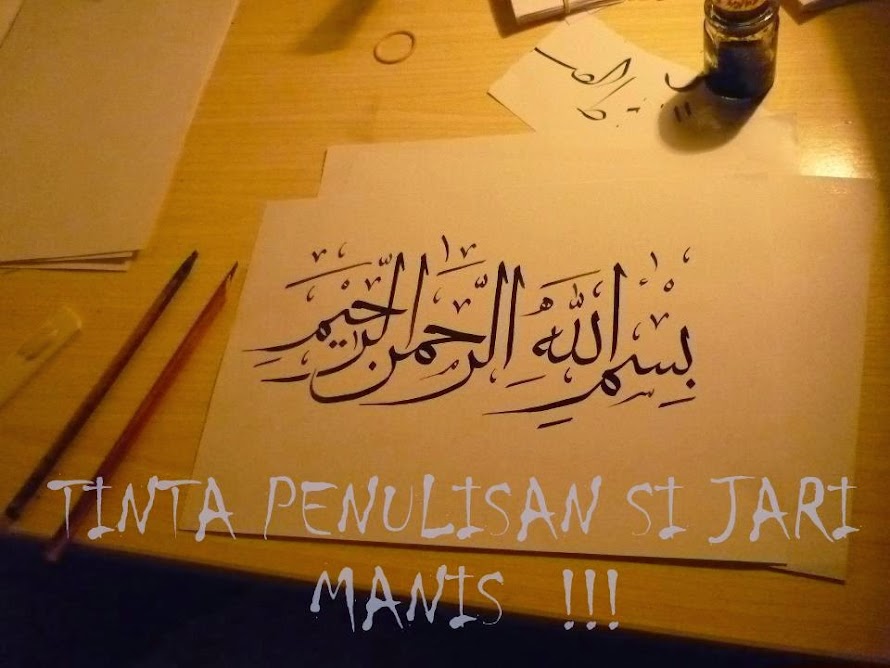 بِسْمِ اللهِ الرَّحْمٰنِ الرَّحِيْمِ
TINTA PENULISAN SI JARI
MANIS !!!